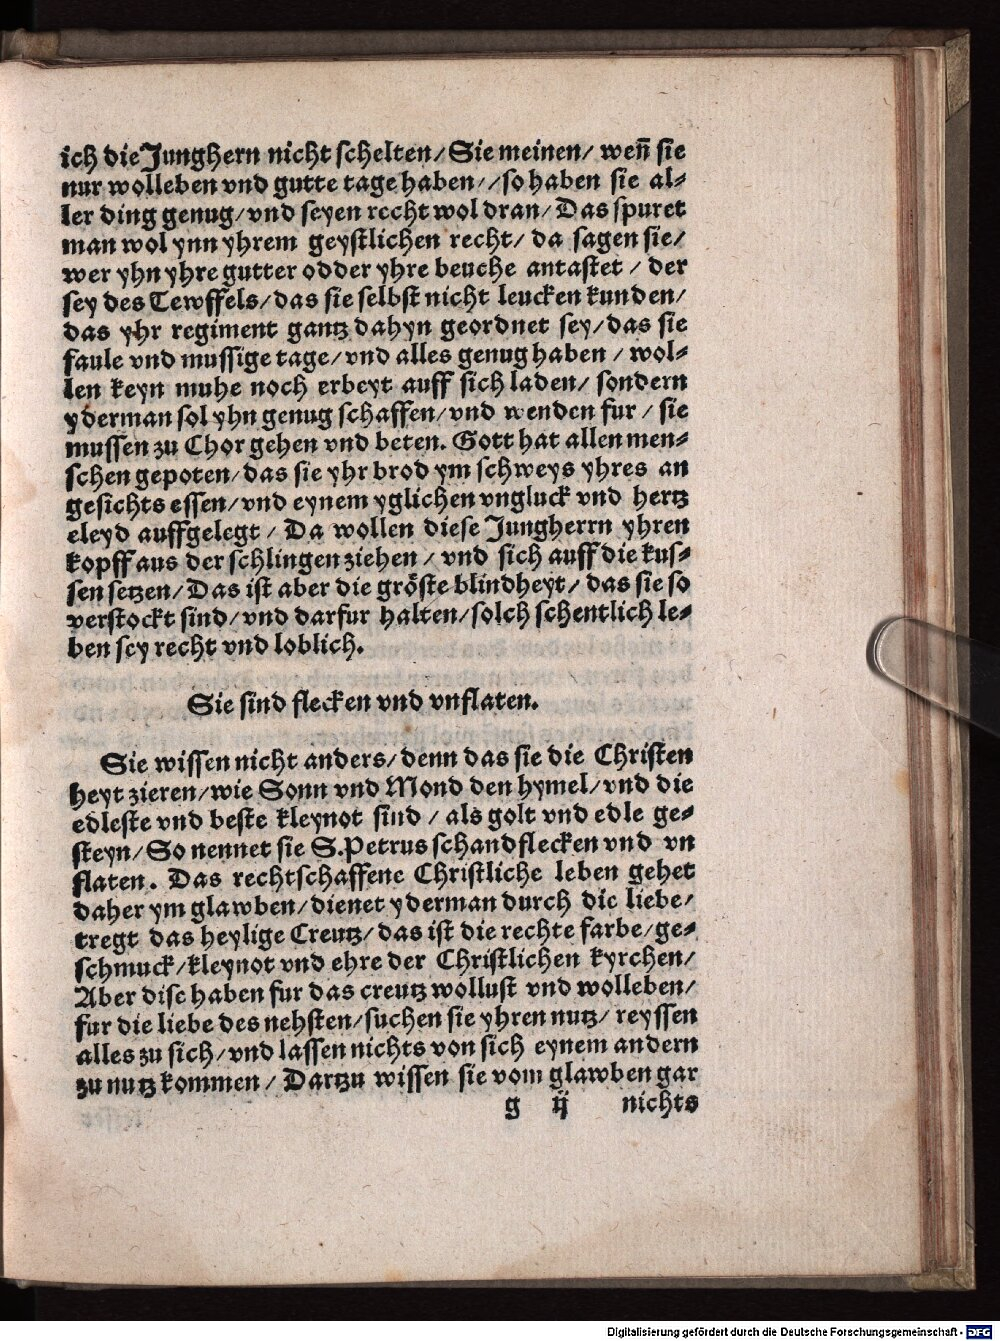 ich die Junghern nicht schelten/ Sie meinen/ weñ sie
nur wolleben vnd gutte tage haben//so haben sie al⸗
ler ding genug/vnd seyen recht wol dran/ Das spuret
man wol ynn yhrem geystlichen recht/ da sagen sie/
wer yhn yhre gutter odder yhre beuche antastet / der
sey des Tewffels/das sie selbst nicht leucken kunden/
das yhr regiment gantz dahyn geordnet sey/das sie
faule vnd mussige tage/vnd alles genug haben / wol⸗
len keyn muhe noch erbeyt auff sich laden/ sondern
yderman sol yhn genug schaffen/vnd wenden fur / sie
mussen zu Chor gehen vnd beten. Gott hat allen men⸗
schen gepoten/das sie yhr brod ym schweys yhres an
gesichts essen/vnd eynem yglichen vngluck vnd hertz
eleyd auffgelegt / Da wollen diese Jungherrn yhren
kopff aus der schlingen ziehen / vnd sich auff die kus⸗
sen setzen/ Das ist aber die gröste blindheyt/ das sie so
verstockt sind/vnd darfur halten/solch schentlich le⸗
ben sey recht vnd loblich.
Sie sind flecken vnd vnflaten.
Sie wissen nicht anders/denn das sie die Christen
heyt zieren/wie Sonn vnd Mond den hymel/vnd die
edleste vnd beste kleynot sind / als golt vnd edle ge⸗
steyn/So nennet sie S.Petrus schandflecken vnd vn
flaten. Das rechtschaffene Christliche leben gehet
daher ym glawben/dienet yderman durch die liebe/
tregt das heylige Creutz/das ist die rechte farbe/ge⸗
schmuck/kleynot vnd ehre der Christlichen kyrchen/
Aber dise haben fur das creutz wollust vnd wolleben/
fur die liebe des nehsten/suchen sie yhren nutz/ reyssen
alles zu sich/vnd lassen nichts von sich eynem andern
zu nutz kommen/ Dartzu wissen sie vom glawben gar
g ij nichts
Digitalisierung gefördert durch die Deutsche Forschungsgemeinschaft - DFG